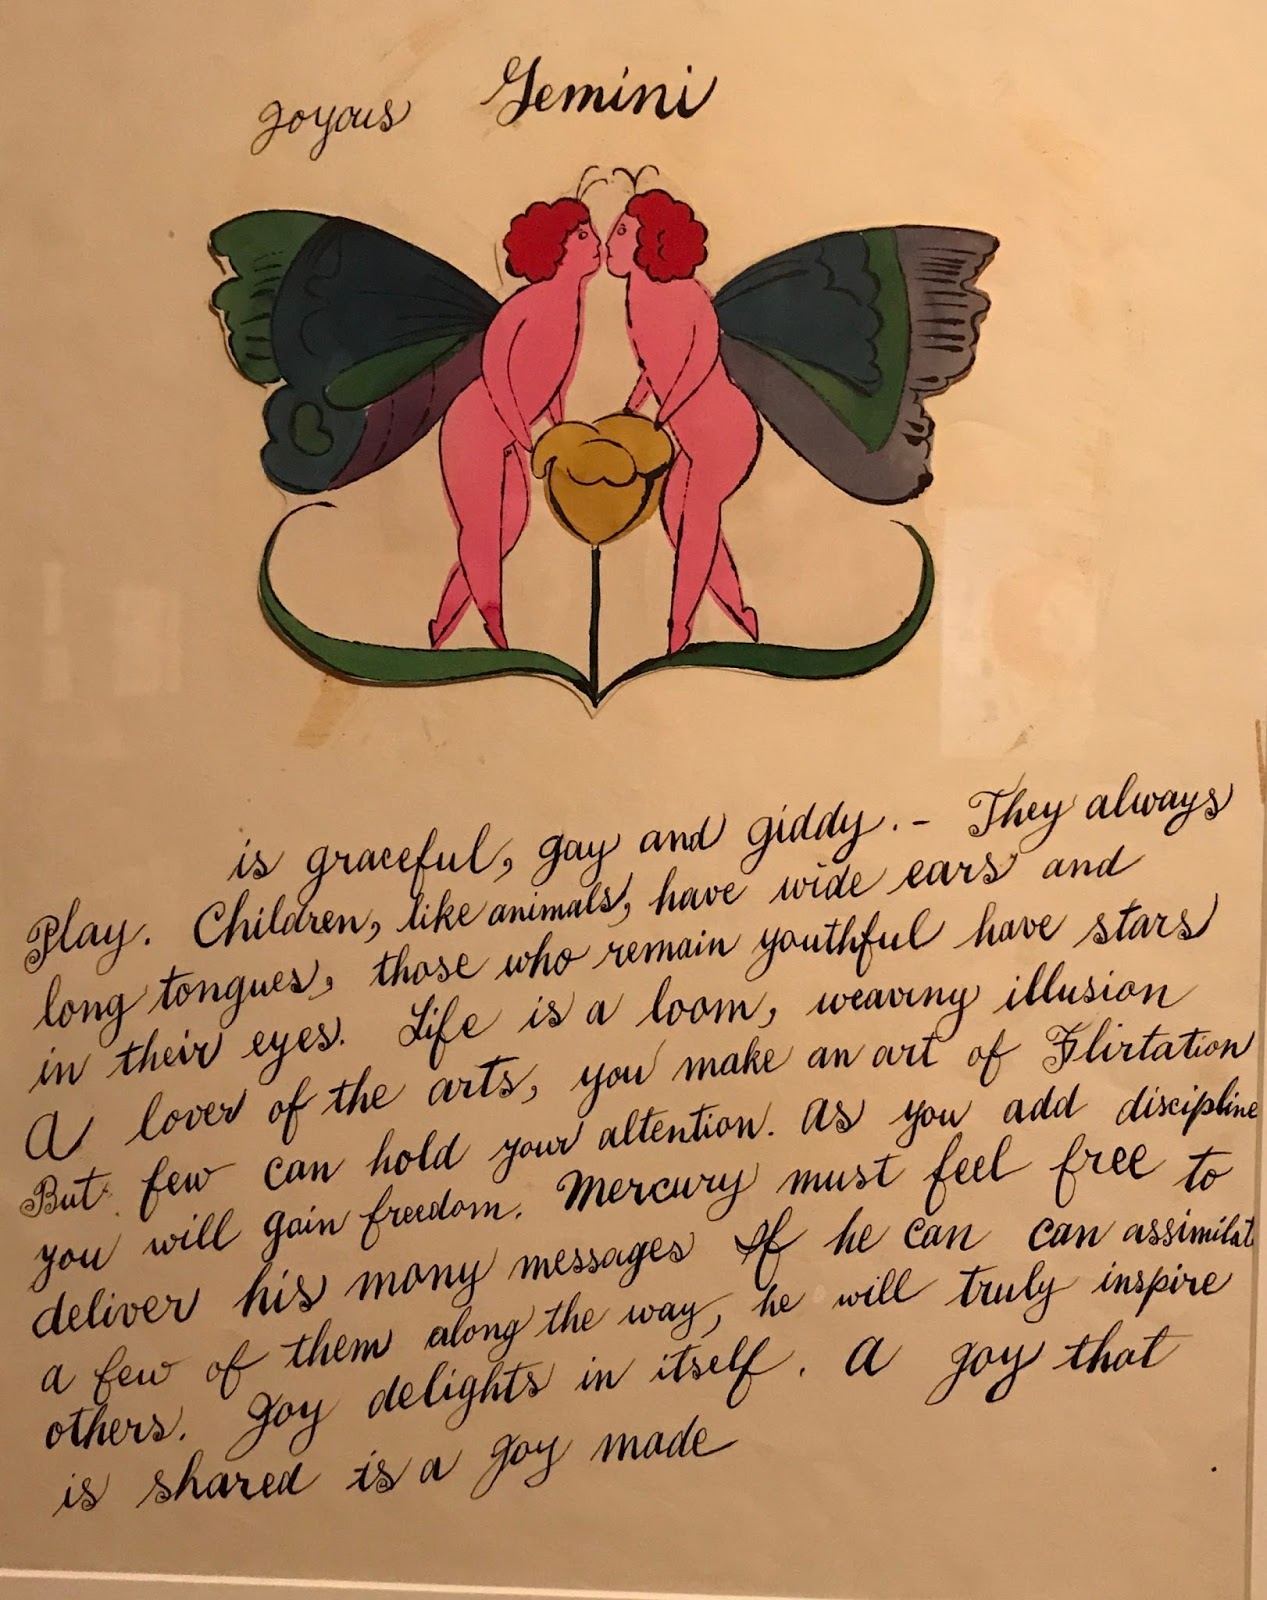 Joyous Gemini
is graceful, gay and giddy. - They always
Play. Children, like animals, have wide ears and
long tongues, those who remain youthful have stars
in their eyes. Life is a loom, weaving illusion
A lover of the arts, you make an art of Flirtation
But few can hold your altention. As you add discipline
you will gain freedom. Mercury must feel free to
deliver his many messages If he can can assimilat
a few of them along the way, he will truly inspire
others. Joy delights in itself. A joy that
is shared is a joy made